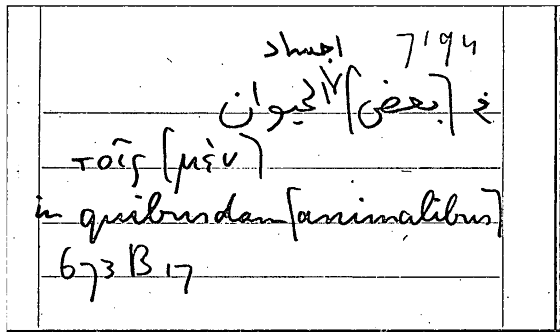 اجساد 7194
في [بعض] الحيوان
τοῖς [μὲν]
in quibusdam [animalibus]
673 B 17